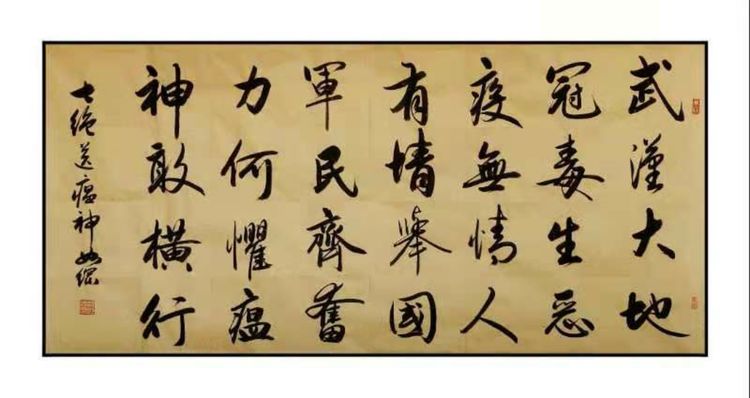 武漢大地
冠毒生惡
疫無情人
有情舉國
軍民齊奮
力何懼瘟
神敢橫行
七絕送瘟神